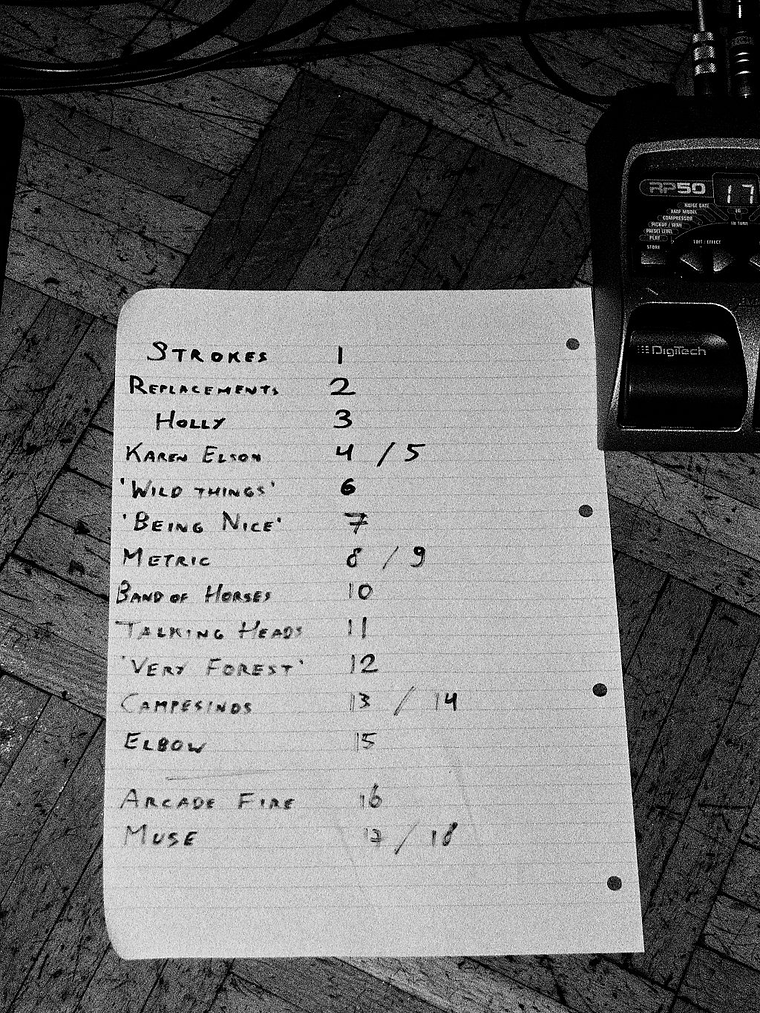 RP50 17
NOISE GATE
AMP MODEL
COMPRESSOR
PICKUP / WAH
PRESET LEVEL
PLAY
STORE
EDIT / EFFECT
EQ
IN TUNE
DigiTech
STROKES 1
REPLACEMENTS 2
HOLLY 3
KAREN ELSON 4 / 5
'WILD THINGS' 6
'BEING NICE' 7
METRIC 8 / 9
BAND OF HORSES 10
TALKING HEADS 11
'VERY FOREST' 12
CAMPESINOS 13 / 14
ELBOW 15
ARCADE FIRE 16
MUSE 17 / 18